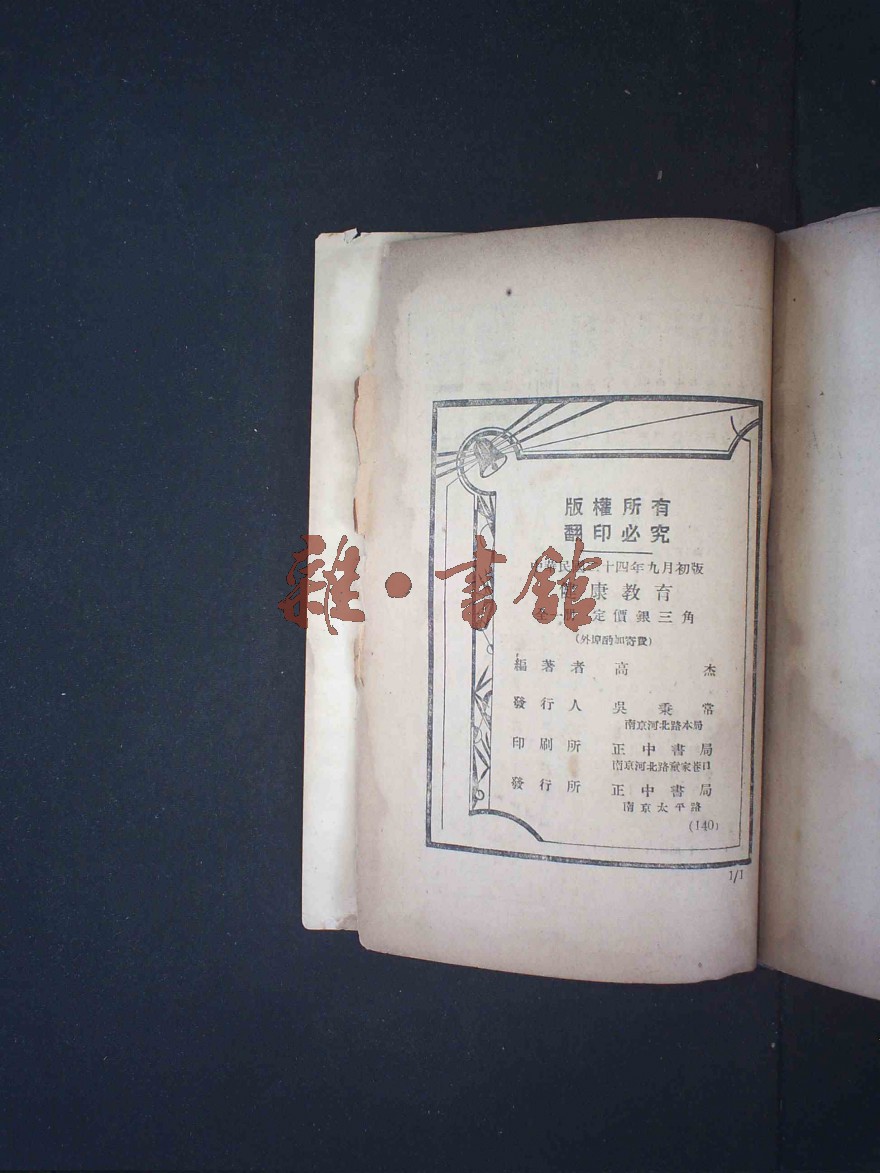 版權所有
翻印必究
中華民國二十四年九月初版
健康教育
全一冊 定價銀三角
(外埠酌加寄費)
編著者 高 杰
發行人 吳秉常
南京河北路本局
印刷所 正中書局
南京河北路童家巷口
發行所 正中書局
南京太平路
(140)
1/1
雜·書館